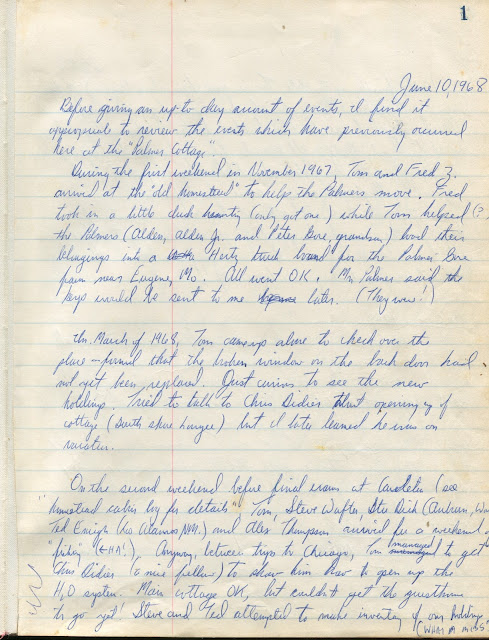 1
June 10, 1968
Before giving an up to day account of events, I find it
appropriate to review the events which have previously occurred
here at the "Palmer Cottage."
During the first weekend in November 1967, Tom and Fred Z.
arrived at the "old Homestead" to help the Palmers move. Fred
took in a little duck hunting (only got one) while Tom helped (?)
the Palmers (Alden, Alden Jr. and Peter Bore, grandson) load their
belongings into a Hertz truck bound for the Palmer Bore
farm near Eugene, Mo. All went OK. Mr. Palmer said the
keys would be sent to me later. (They were!)
In March of 1968, Tom came up alone to check over the
place - found that the broken window on the back door had
not yet been replaced. Just curious to see the new
holdings. Tried to talk to Chris Didier about opening up of
cottage (South shore ) but I later learned he was on
vacation.
On the second weekend before final exams at Carleton (see
"Homestead cabin log for details") Tom, Steve , Stu (Auburn,
Ted (Los Alamos, N.M.) and Alex Thompson arrived for a weekend of
"fishing" (←HA!). Anyway, between trips to Chicago, Tom managed to get
Chris Didier (a nice fellow) to show him how to open up the
H2O system. Main cottage OK, but couldn't get the guesthouse
to go yet! Steve and Ted attempted to make inventory of our holdings
(WHAT A MESS